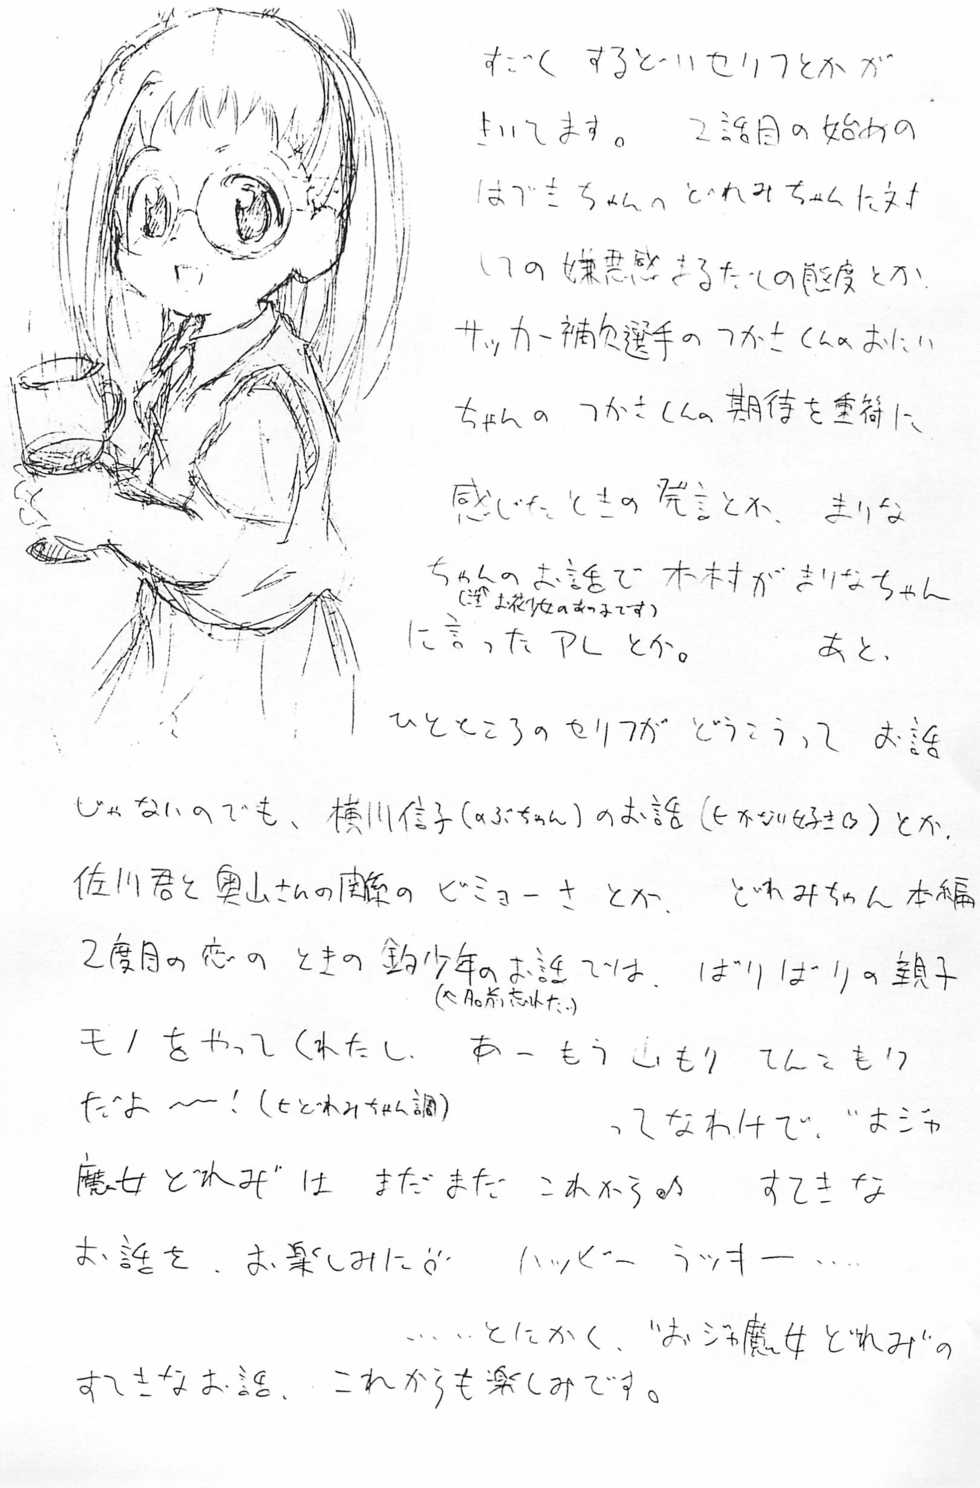 すごく するどいセリフとかが
きいてます。 2話目の始めの
はづきちゃんの どれみちゃんに対
しての嫌悪感まるだしの態度とか、
サッカー補欠選手の つかさくんのおにい
ちゃんの つかさくんの期待を重荷に
感じたときの発言とか、 まりな
ちゃんのお話で 木村がまりなちゃん
に言ったアレとか。 あと、
ひとところのセリフが どうこうって お話
じゃないのでも、横川信子(のぶちゃん)のお話(← かなり好き)とか、
佐川君と奥山さんの関係の ビミョーさ とか、 どれみちゃん本編
2度目の恋の ときの 釣少年のお話では、 ばりばりの親子
(← 名前忘れた)
モノをやってくれたし、 あーもう 山もり てんこもり
だよ〜〜!(←どれみちゃん調)
ってなわけで、"おジャ
魔女どれみ"は まだまだ これから♪ すてきな
お話を、お楽しみに ハッピー ラッキー ‥‥
‥‥とにかく、"おジャ魔女どれみ"の
すてきなお話、 これからも楽しみです。